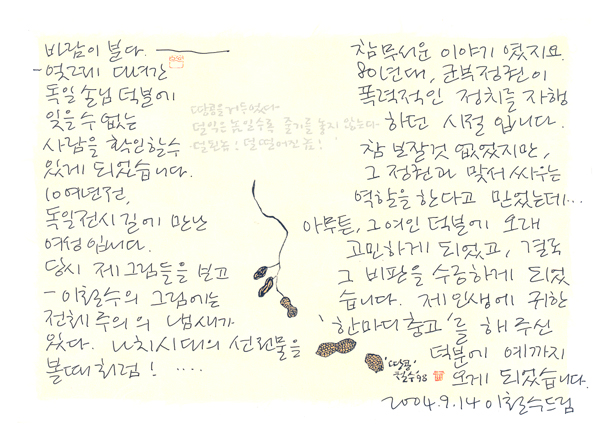 바람이 분다.
-엊그제 다녀간
독일 손님 덕분에
잊을 수 없는
사람을 확인할 수
있게 되었습니다.
10여년전,
독일전시길에 만난
여성입니다.
당시 제 그림들을 보고
- 이철수의 그림에는
전체주의의 냄새가
있다. 나치시대의 선전물을
볼때처럼! ....
땅콩을 거두었다
덜익은 놈일수록 줄기를 놓지 않는다
덜된놈! 덜떨어진 놈!
참 무서운 이야기였지요.
80년대, 군복정권이
폭력적인 정치를 자행
하던 시절입니다.
참 보잘것 없었지만,
그 정권과 맞서 싸우는
역할을 한다고 믿었는데...
아무튼, 그 여인 덕분에 오래
고민하게 되었고, 결국
그 비판을 수긍하게 되었
습니다. 제 인생에 귀한
'한마디 충고'를 해 주신
덕분에 예까지
오게 되었습니다.
'땅콩'
철수98
2004.9.14 이철수드림